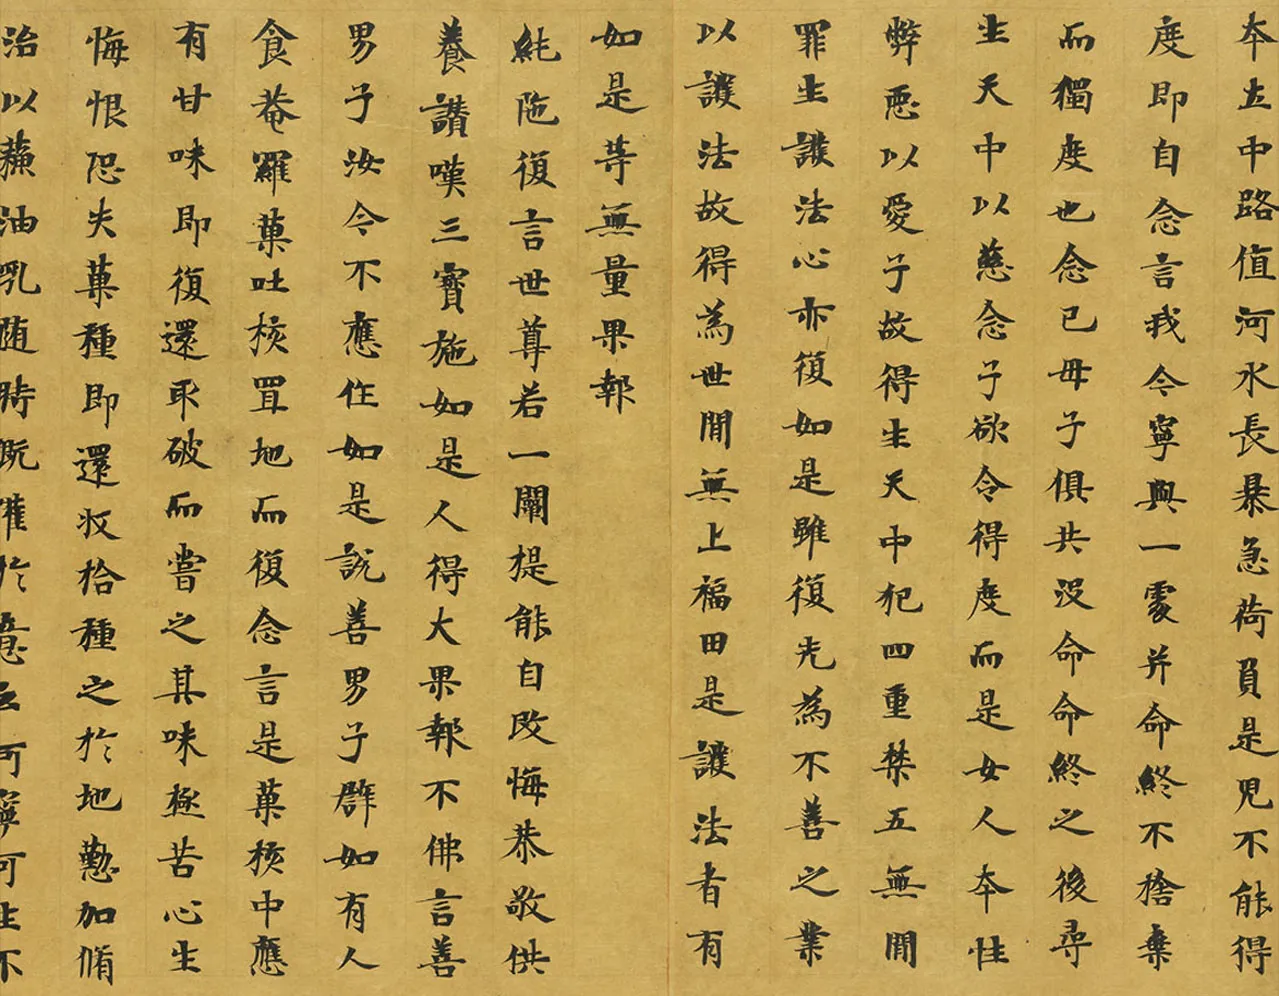 夲立中路值河水長暴急荷負是兒不能得
度即自念言我今寧與一處并命終不捨棄
而獨度也念已母子俱共没命命終之後尋
生天中以慈念子欲令得度而是女人夲性
弊惡以愛子故得生天中犯四重禁五無間
罪生護法心亦復如是雖復先為不善之業
以護法故得為世間無上福田是護法者有
如是等無量果報
純陁復言世尊若一闡提能自改悔恭敬供
養讃嘆三寳施如是人得大果報不佛言善
男子汝今不應作如是説善男子譬如有人
食菴羅菓吐核置地而復念言是菓核中應
有甘味即復還取破而嘗之其味極苦心生
悔恨恐失菓種即還收拾種之於地懃加脩
治以蘓油乳随時溉灌於意云何寧可生不